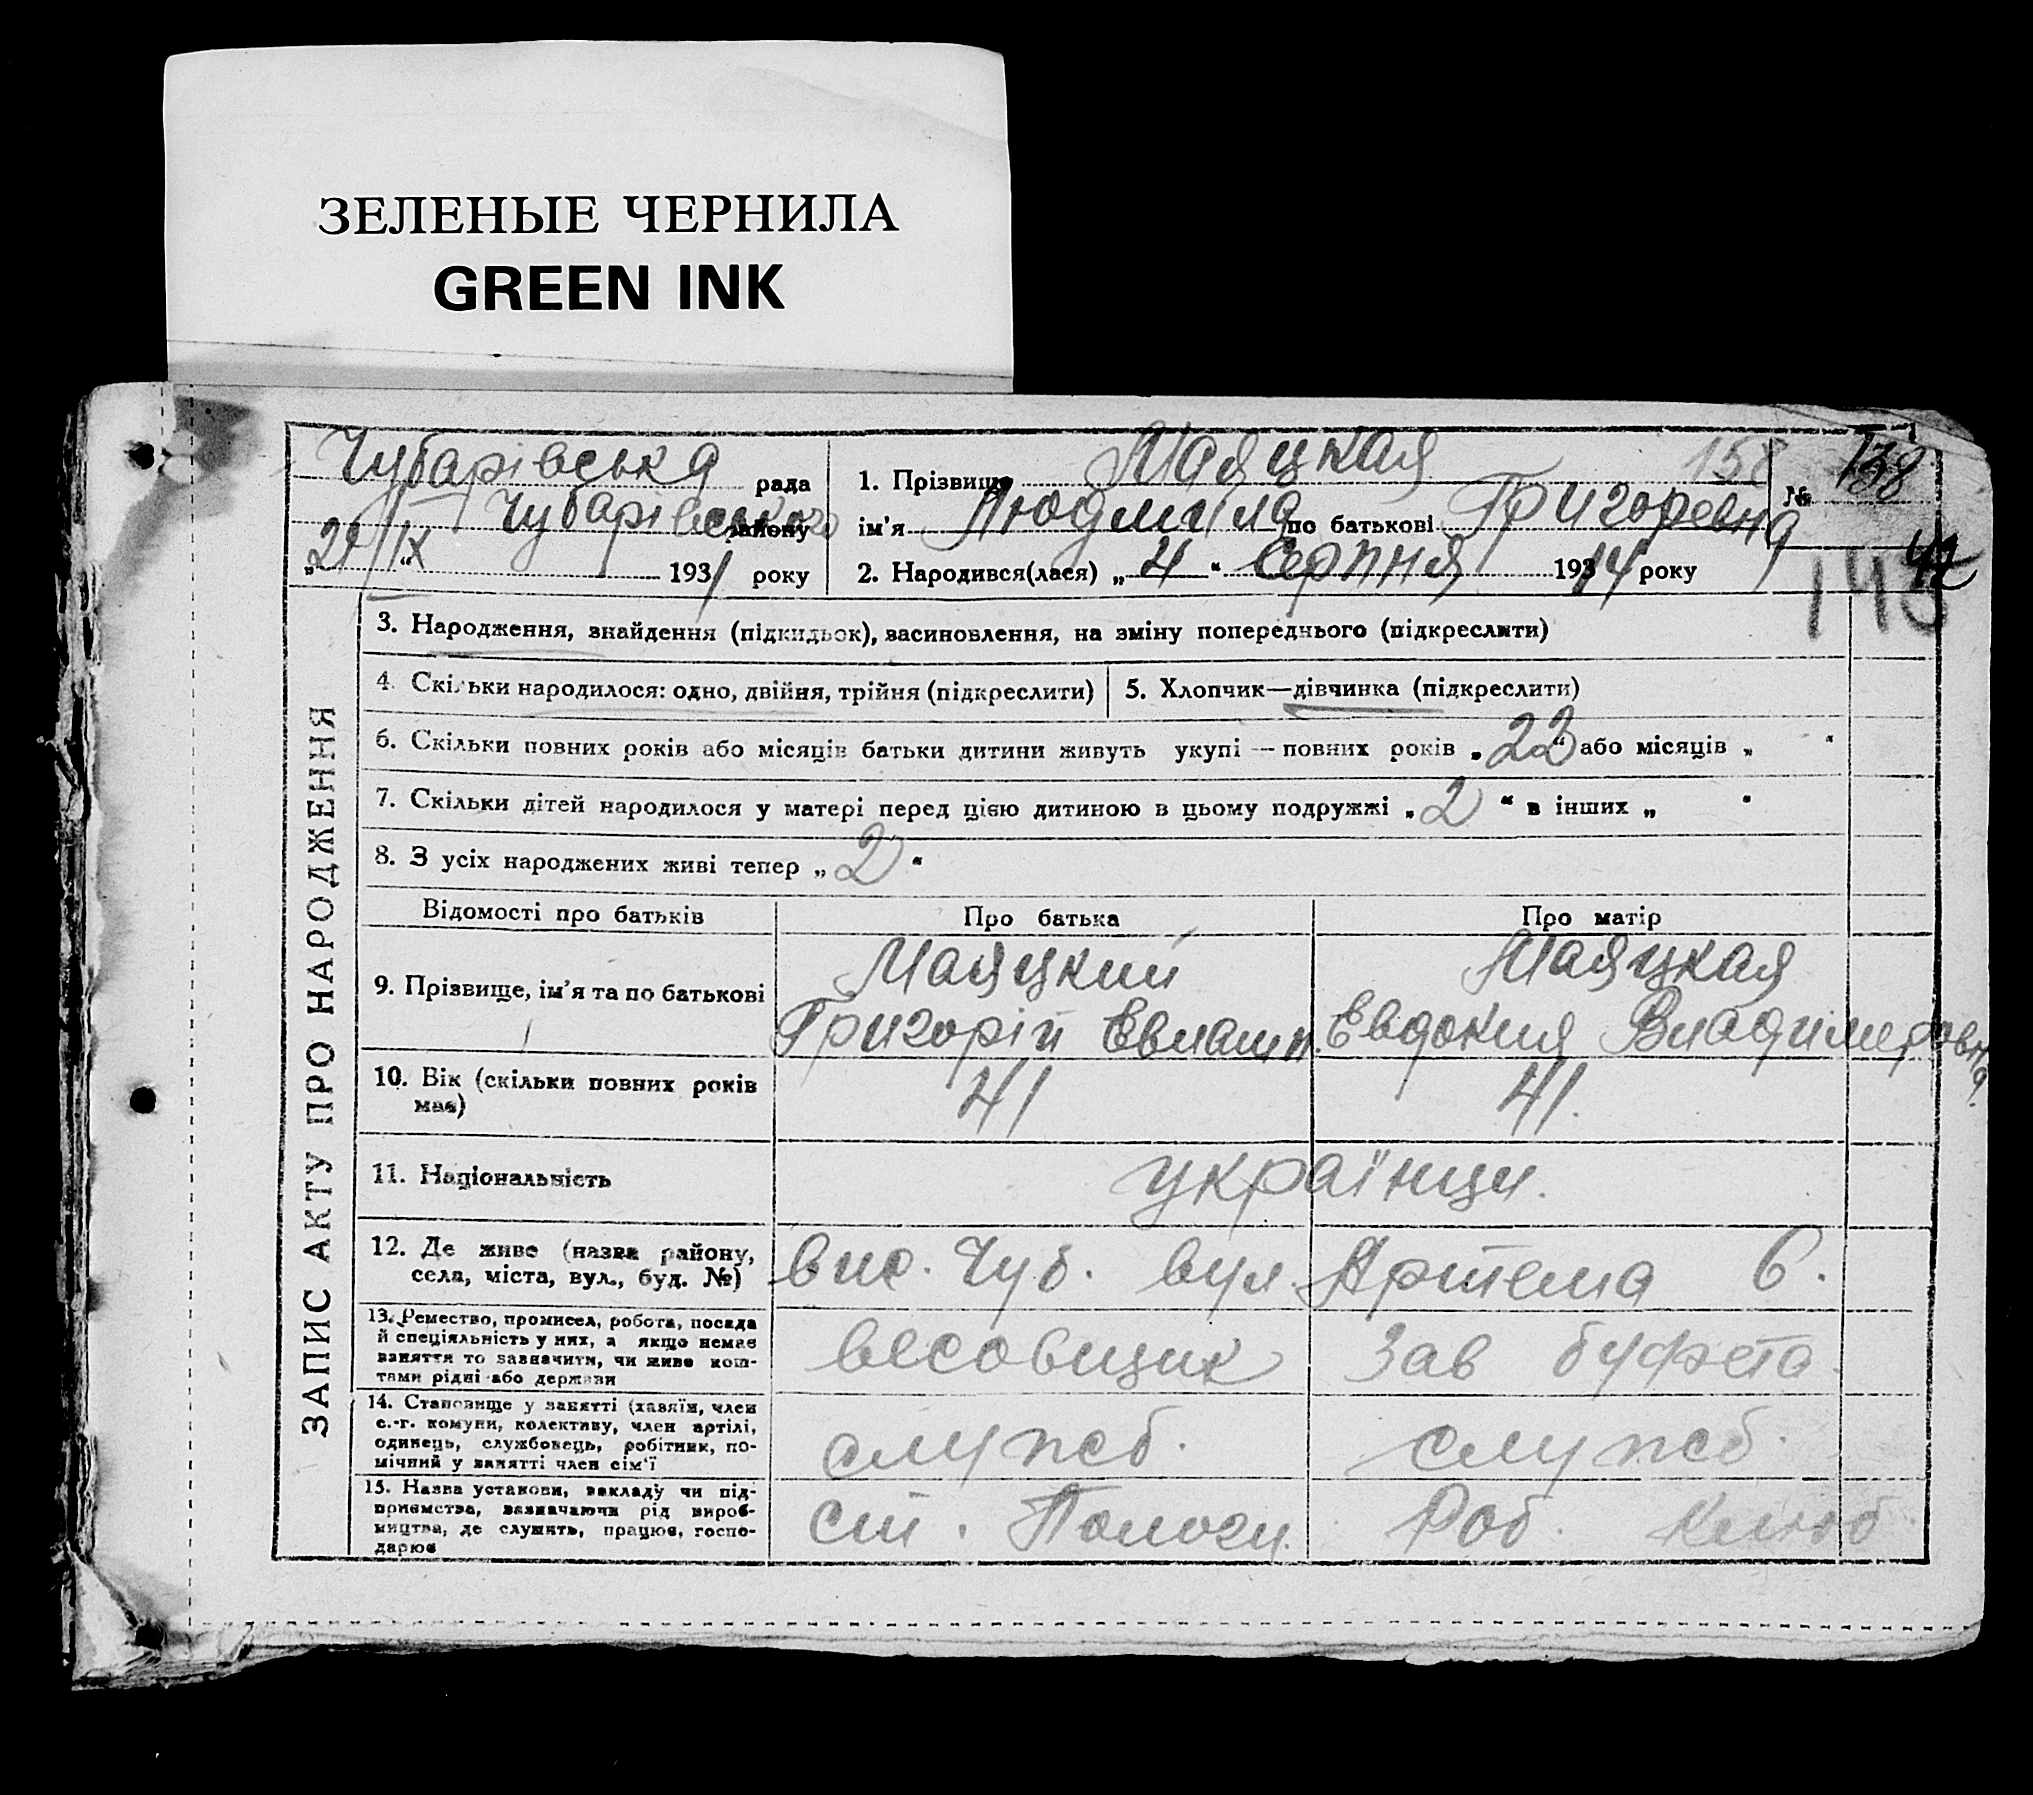 ЗЕЛЕНЫЕ ЧЕРНИЛА
GREEN INK
Чубарівська рада
Чубарівського району
„29/IX“ 1931 року
1. Прізвище Маяцкая 158
ім'я Людмила по батькові Григоревна
2. Народився(лася) „4“ Серпня 1914 року
№ 138
42
148
ЗАПИС АКТУ ПРО НАРОДЖЕННЯ
3. Народження, знайдення (підкидьок), засиновлення, на зміну попереднього (підкреслити)
4. Скільки народилося: одно, двійня, трійня (підкреслити)
5. Хлопчик—дівчинка (підкреслити)
6. Скільки повних років або місяців батьки дитини живуть укупі — повних років „22“ або місяців „ “
7. Скільки дітей народилося у матері перед цією дитиною в цьому подружжі „2“ в інших „ “
8. З усіх народжених живі тепер „2“
Відомості про батьків Про батька Про матір
9. Прізвище, ім'я та по батькові
Маяцкий
Григорій Евламп.
Маяцкая
Евдокия Владимировна.
10. Вік (скільки повних років має)
41 41.
11. Національність
українци.
12. Де живе (назва району,
села, міста, вул., буд. №)
вис. Чуб. вул. Артема 6.
13. Ремество, промисел, робота, посада
й спеціяльність у них, а якщо немає
взяття то зазначити, чи живе кош-
тами рідні або держави
весовщик Зав буфета.
14. Становище у занятті (хазяїн, член
с.-г. комуни, колективу, член артілі,
одинець, службовець, робітник, по-
мічний у занятті член сім'ї
служб. служб.
15. Назва установи, закладу чи під-
приємства, зазначаючи рід вироб-
ництва, де служить, працює, госпо-
дарює
ст. Пологи. Роб. клюб.